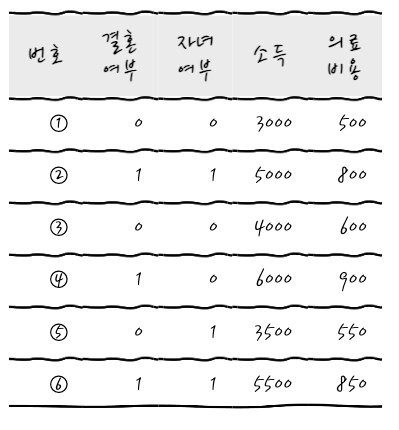 번호 결혼 여부 자녀 여부 소득 의료 비용
① 0 0 3000 500
② 1 1 5000 800
③ 0 0 4000 600
④ 1 0 6000 900
⑤ 0 1 3500 550
⑥ 1 1 5500 850